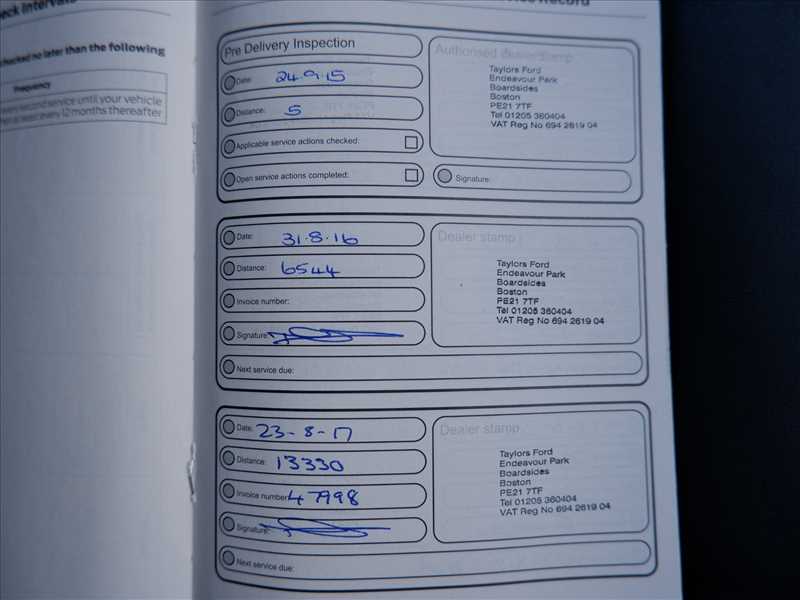 eck Intervals
checked no later than the following
Frequency
every second service until your vehicle
at least every 12 months thereafter
Record
Pre Delivery Inspection
Date: 24.9.15
Distance: 5
Applicable service actions checked:
Open service actions completed:
Authorised dealer stamp
Taylors Ford
Endeavour Park
Boardsides
Boston
PE21 7TF
Tel 01205 360404
VAT Reg No 694 2619 04
Signature:
Date: 31.8.16
Distance: 6544
Invoice number:
Signature:
Dealer stamp
Taylors Ford
Endeavour Park
Boardsides
Boston
PE21 7TF
Tel 01205 360404
VAT Reg No 694 2619 04
Next service due:
Date: 23-8-17
Distance: 13330
Invoice number: 47998
Signature:
Dealer stamp
Taylors Ford
Endeavour Park
Boardsides
Boston
PE21 7TF
Tel 01205 360404
VAT Reg No 694 2619 04
Next service due: